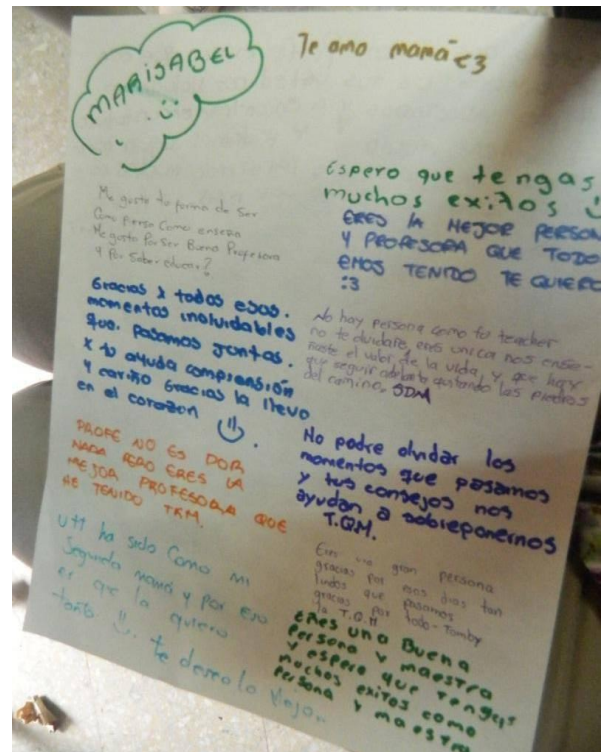 MARISABEL
Te amo mamá <3
Espero que tengas
muchos exitos
ERES LA MEJOR PERSON
Y PROFESORA QUE TODO
EMOS TENIDO TE QUIERO
:3
Me gusta tu forma de Ser
Como piensa Como enseña
Me gusta Por Ser Buena Profesora
y Por Saber
Gracias x todos esos.
momentos inolvidables
que. pasamos juntas.
x tu ayuda comprensión
y cariño Gracias la llevo
en el corazon
No hay persona como tu teacher
no te olvidare, eres unica nos ense-
ñaste el valor de la vida, y que hay
que seguir adelante quitando las piedras
del camino. SDM
PROFE NO ES POR
NADA PERO ERES LA
MEJOR PROFESORA QUE
HE TENIDO TKM.
No podre olvidar los
momentos que pasamos
y tus consejos nos
ayudan a sobreponernos
T.Q.M.
ha sido Como mi
Segunda mamá y por eso
es que la quiero
tanto. te deseo lo
Eres una gran persona
gracias por esos dias tan
lindos que pasamos
gracias por todo-
T.Q.M
ERES UNA BUENA
Persona y maestra
y espero que tengas
muchos exitos como
Persona y maestra